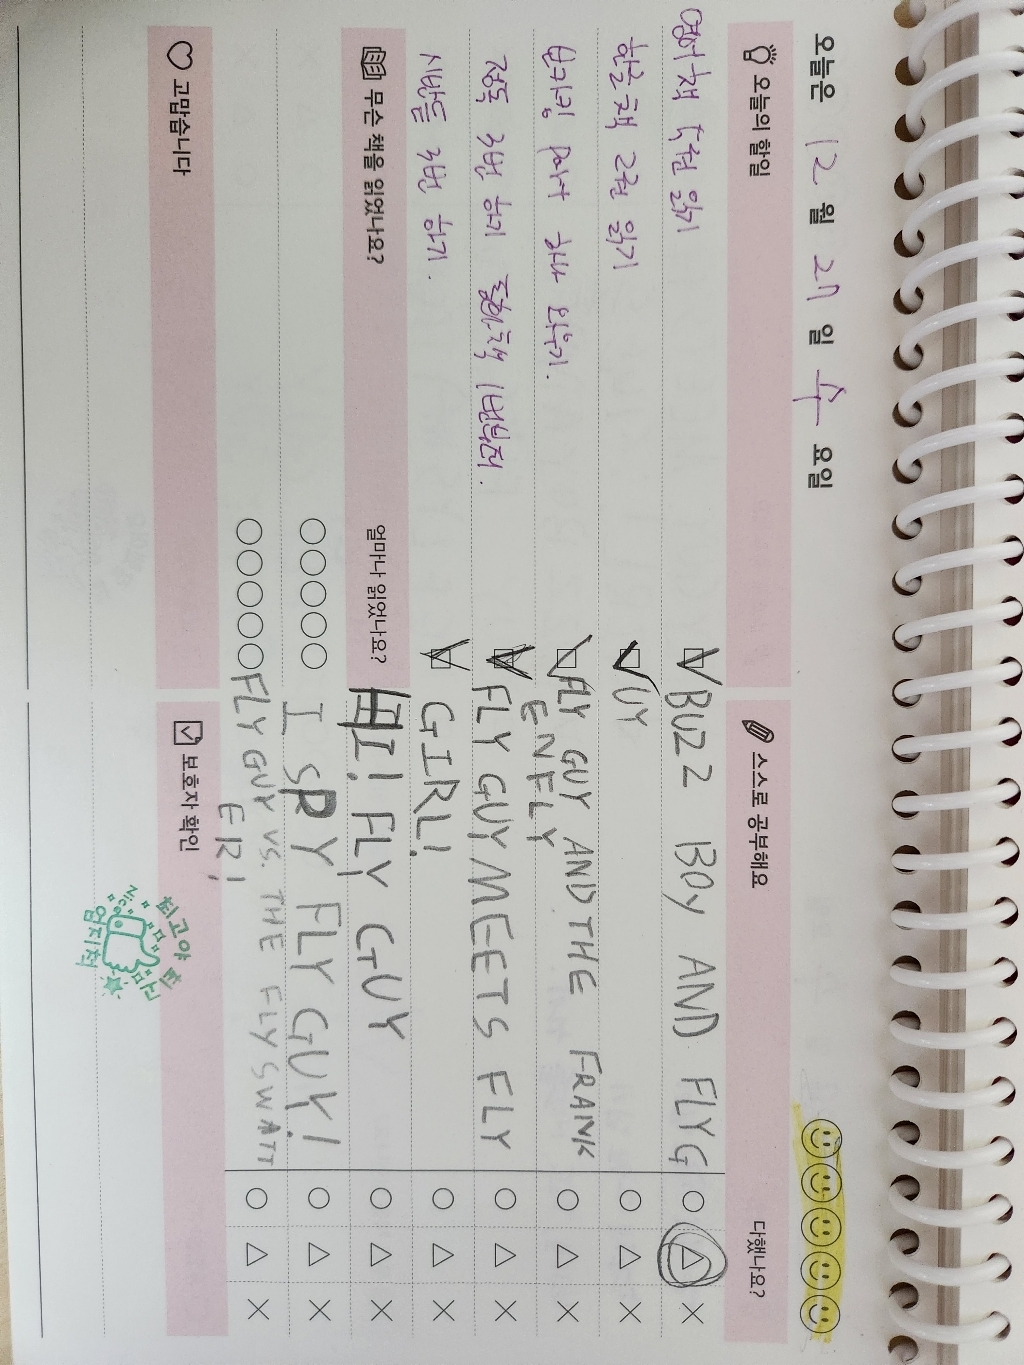 오늘은 12 월 27 일 수 요일
오늘의 할일
영어책 5권 읽기
한글책 2권 읽기
part 하나 외우기.
정독 3번 하기
3번 하기.
무슨 책을 읽었나요?
얼마나 읽었나요?
고맙습니다
스스로 공부해요
다했나요?
BUZZ BOY AND FLYG
UY
FLY GUY AND THE FRANK
ENFLY
FLY GUY MEETS FLY
GIRL!
HI! FLY GUY
I SPY FLY GUY!
FLY GUY VS. THE FLY SWATT
ER!
보호자 확인
최고야 최고
Nice
엄지척